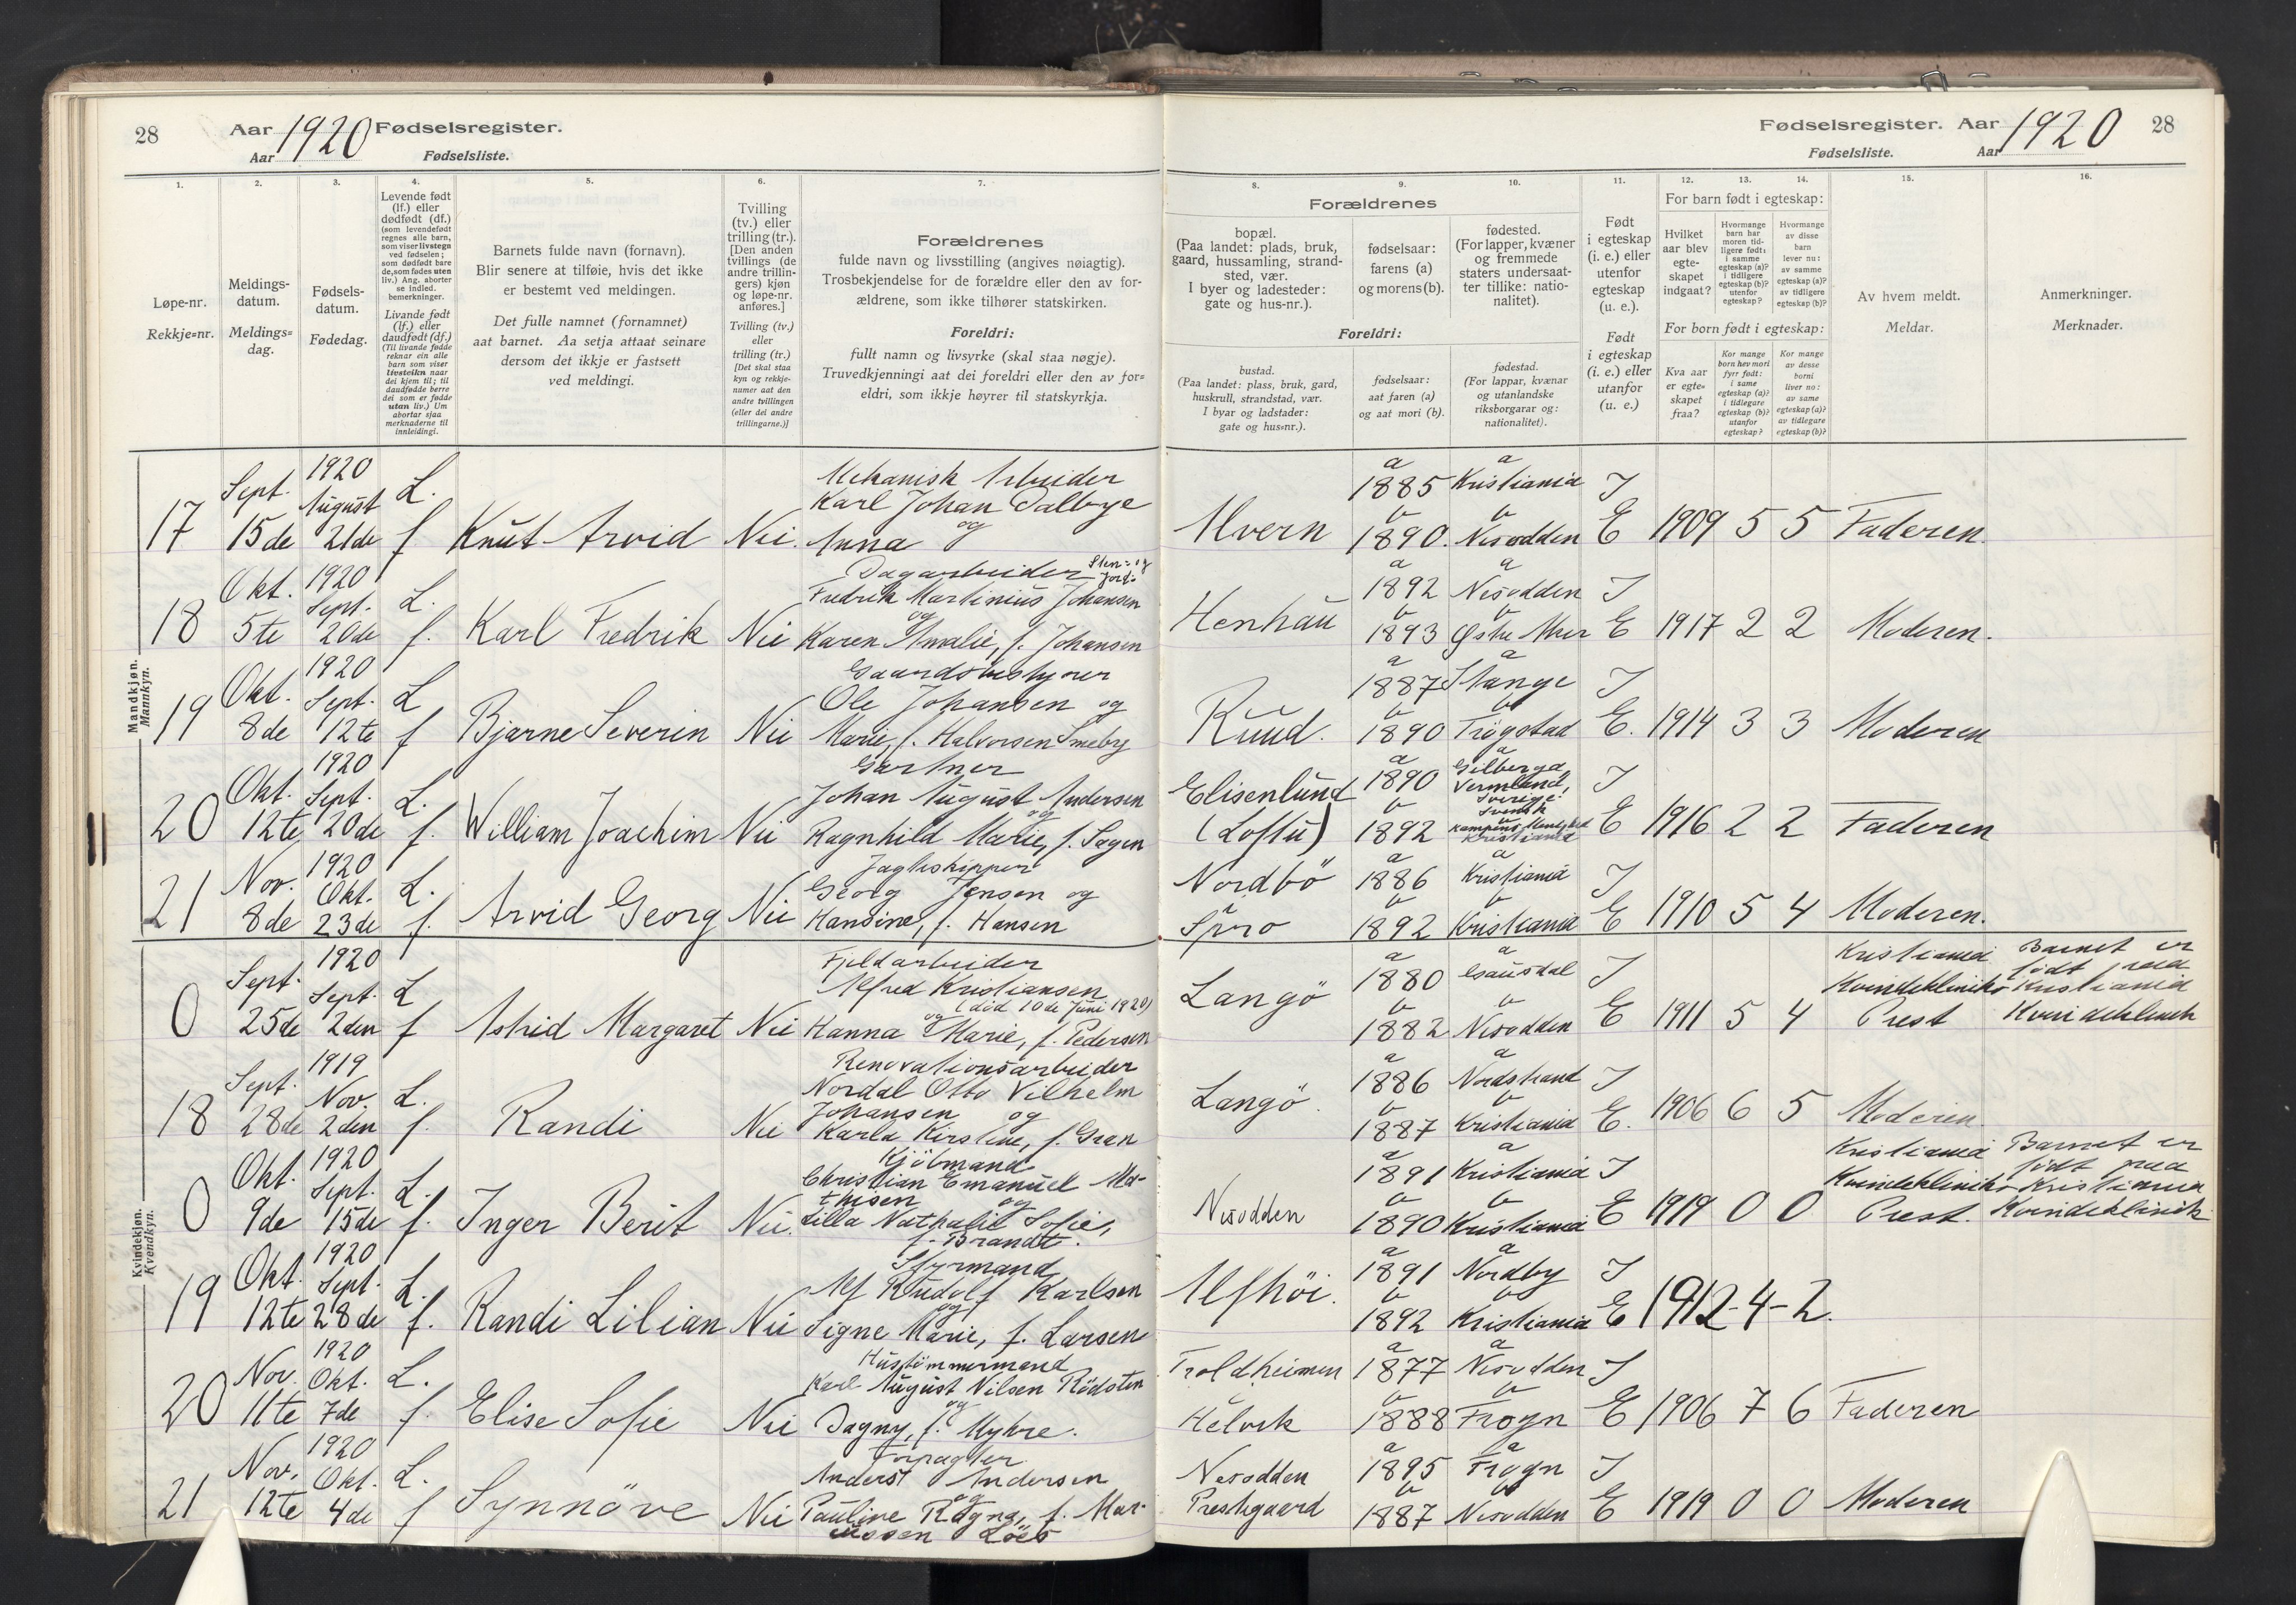 28
Aar 1920 Fødselsregister.
Aar
Fødselsliste.
1.
2.
3.
4.
5.
6.
7.
Løpe-nr.
Rekkje=nr.
Meldings-
datum.
Meldings=
dag.
Fødsels-
datum.
Fødedag.
Levende født
(lf.) eller
dødfødt (df.)
(som levendefødt
regnes alle barn,
som viser livstegn
ved fødselen;
som dødfødt bare
de, som fødes uten
liv.) Ang. aborter
se indled.
bemerkninger.
Livande født
(lf.) eller
daudfødt (df.)
(Til livande fødde
reknar ein alle
barn som viser
livsteikn naar
dei kjem til; til
daudfødde berre
dei som er fødde
utan liv.) Um
abortar sjaa
merknaderne til
innleidingi.
Barnets fulde navn (fornavn).
Blir senere at tilføie, hvis det ikke
er bestemt ved meldingen.
Det fulle namnet (fornamnet)
aat barnet. Aa setja attaat seinare
dersom det ikkje er fastsett
ved meldingi.
Tvilling
(tv.) eller
trilling (tr.).
[Den anden
tvillings (de
andre trillin-
gers) kjøn
og løpe-nr.
anføres.]
Tvilling (tv.)
eller
trilling (tr.)
[Det skal staa
kyn og rekkje-
numer aat den
andre tvillingen
(eller dei andre
trillingarne.)]
Forældrenes
fulde navn og livsstilling (angives nøiagtig).
Trosbekjendelse for de forældre eller den av for-
ældrene, som ikke tilhører statskirken.
Foreldri:
fullt namn og livsyrke (skal staa nøgje).
Truvedkjenningi aat dei foreldri eller den av for=
eldri, som ikkje høyrer til statskyrkja.
Mandkjøn.
Mannkyn.
17
Sept.
15de
1920
August
21de
L.
f.
Knut Arvid
Nei.
Mekanisk Arbeider
Karl Johan Dalbye
og
Anna
18
Okt.
5te
1920
Sept.
20de
L.
f.
Karl Fredrik
Nei
Dagarbeider Sten- og
Jord-
Fredrik Martinius Johansen
og
Karen Amalie, f. Johansen
19
Okt.
8de
1920
Sept.
12te
L
f
Bjarne Severin
Nei
Gaardsbestyrer
Ole Johansen og
Marie, f. Halvorsen Smeby
20
Okt.
12te
1920
Sept.
20de
L.
f.
William Joachim
Nei
Gartner
Johan August Andersen
og
Ragnhild Marie, f. Sagen
21
Nov.
8de
1920
Okt.
23de
L.
f.
Arvid Georg
Nei
Jagtskipper
Georg Jensen og
Hansine, f. Hansen
Kvindekjøn.
Kvendkyn.
0
Sept.
25de
1920
Sept.
2den
L
f
Astrid Margaret
Nei
Fjeldarbeider
Alfred Kristiansen
(død 10de Juni 1920)
og
Hanna Marie, f. Pedersen
18
Sept.
28de
1919
Nov.
2den
L.
f.
Randi
Nei
Renovationsarbeider
Nordal Otto Vilhelm
Johansen og
Karla Kirstine, f. Gran
0
Okt.
9de
1920
Sept.
15de
L.
f.
Inger Berit
Nei.
Kjöbmand
Christian Emanuel Ma-
thisen og
Lilla Nathalie Sofie,
f. Brandt.
19
Okt.
12te
1920
Sept.
28de
L.
f.
Randi Lilian
Nei
Styrmand
Alf Rudolf Karlsen
og
Signe Marie, f. Larsen
20
Nov.
11te
1920
Okt.
7de
L.
f.
Elise Sofie
Nei
Hustømmermand
Karl August Nilsen Rödsten
og
Dagny, f. Myhre.
21
Nov.
12te
1920
Okt.
4de
L.
f
Synnöve
Nei
Forpagter
Anders Andersen
og
Pauline Ragna, f. Mar-
iussen Löes
Fødselsregister. Aar 1920 28
Fødselsliste.
Aar
8.
9.
10.
11.
12.
13.
14.
15.
16.
Forældrenes
bopæl.
(Paa landet: plads, bruk,
gaard, hussamling, strand-
sted, vær.
I byer og ladesteder:
gate og hus-nr.).
fødselsaar:
farens (a)
og morens (b).
fødested.
(For lapper, kvæner
og fremmede
staters undersaat-
ter tillike: natio-
nalitet).
Foreldri:
bustad.
(Paa landet: plass, bruk, gard,
huskrull, strandstad, vær.
I byar og ladstader:
gate og hus=nr.).
fødselsaar:
aat faren (a)
og aat mori (b).
fødestad.
(For lappar, kvænar
og utanlandske
riksborgarar og:
nationalitet).
Født
i egteskap
(i. e.) eller
utenfor
egteskap
(u. e.).
Født
i egteskap
(i. e.) eller
utanfor
(u. e.)
For barn født i egteskap:
Hvilket
aar blev
egte-
skapet
indgaat?
Hvormange
barn har
moren tid-
ligere født:
i samme
egteskap (a)?
i tidligere
egteskap (b)?
utenfor
egteskap?
Hvormange
av disse
barn
lever nu:
av samme
egteskap (a)?
av tidligere
egteskap (b)?
For born født i egteskap:
Kva aar
er egte=
skapet
fraa?
Kor mange
born hev mori
fyrr født:
i same
egteskap (a)?
i tidlegare
egteskap (b)?
utanfor
egteskap?
Kor mange
av desse
borni
liver no:
av same
egteskap (a)?
av tidlegare
egteskap (b)?
Av hvem meldt.
Meldar.
Anmerkninger.
Merknader.
Alvern
a
1885
b
1890.
a
Kristiania
b
Nesodden
I
E
1909 5 5 Faderen.
Henhau
a
1892
b
1893
a
Nesodden
b
Østre Aker
I
E
1917 2 2 Moderen.
Ruud.
a
1887
b
1890
Stange
a
b
Trøgstad
I
E.
1914 3 3 Moderen
Elisenlund
(Loftu)
a
1890
b
1892
a
Gilberga,
Vermland,
Sverige.
Svensk
b
Kampens Menighed
Kristiania
I
E
1916 2 2 Faderen
Nordbö
Spro
a
1886
b
1892
a
Kristiania
b
Kristiania
I
E
1910 5 4 Moderen.
Langö
a
1880
b
1882
a
Gausdal
b
Nesodden
I
E
1911 5 4
Kristiania
Kvindekliniks
Prest
Barnet er
født paa
Kristiania
Kvindeklinik
Langö.
a
1886
b
1887
a
Nordstrand
b
Kristiania
I
E.
1906 6 5 Moderen
Nesodden
a
1891
b
1890
a
Kristiania
b
Kristiania
I
E
1919 0 0
Kristiania
Kvindekliniks
Prest.
Barnet er
født paa
Kristiania
Kvindeklinik
Alfhöi.
a
1891
b
1892
a
Nordby
b
Kristiania
I
E
1912-4-2.
Troldheimen
Helvik
a
1877
b
1888
a
Nesodden
b
Frogn
I
E
1906 7 6 Faderen
Nesodden
Prestegaard
a
1895
b
1887
a
Frogn
b
Nesodden
I
E
1919 0 0 Moderen